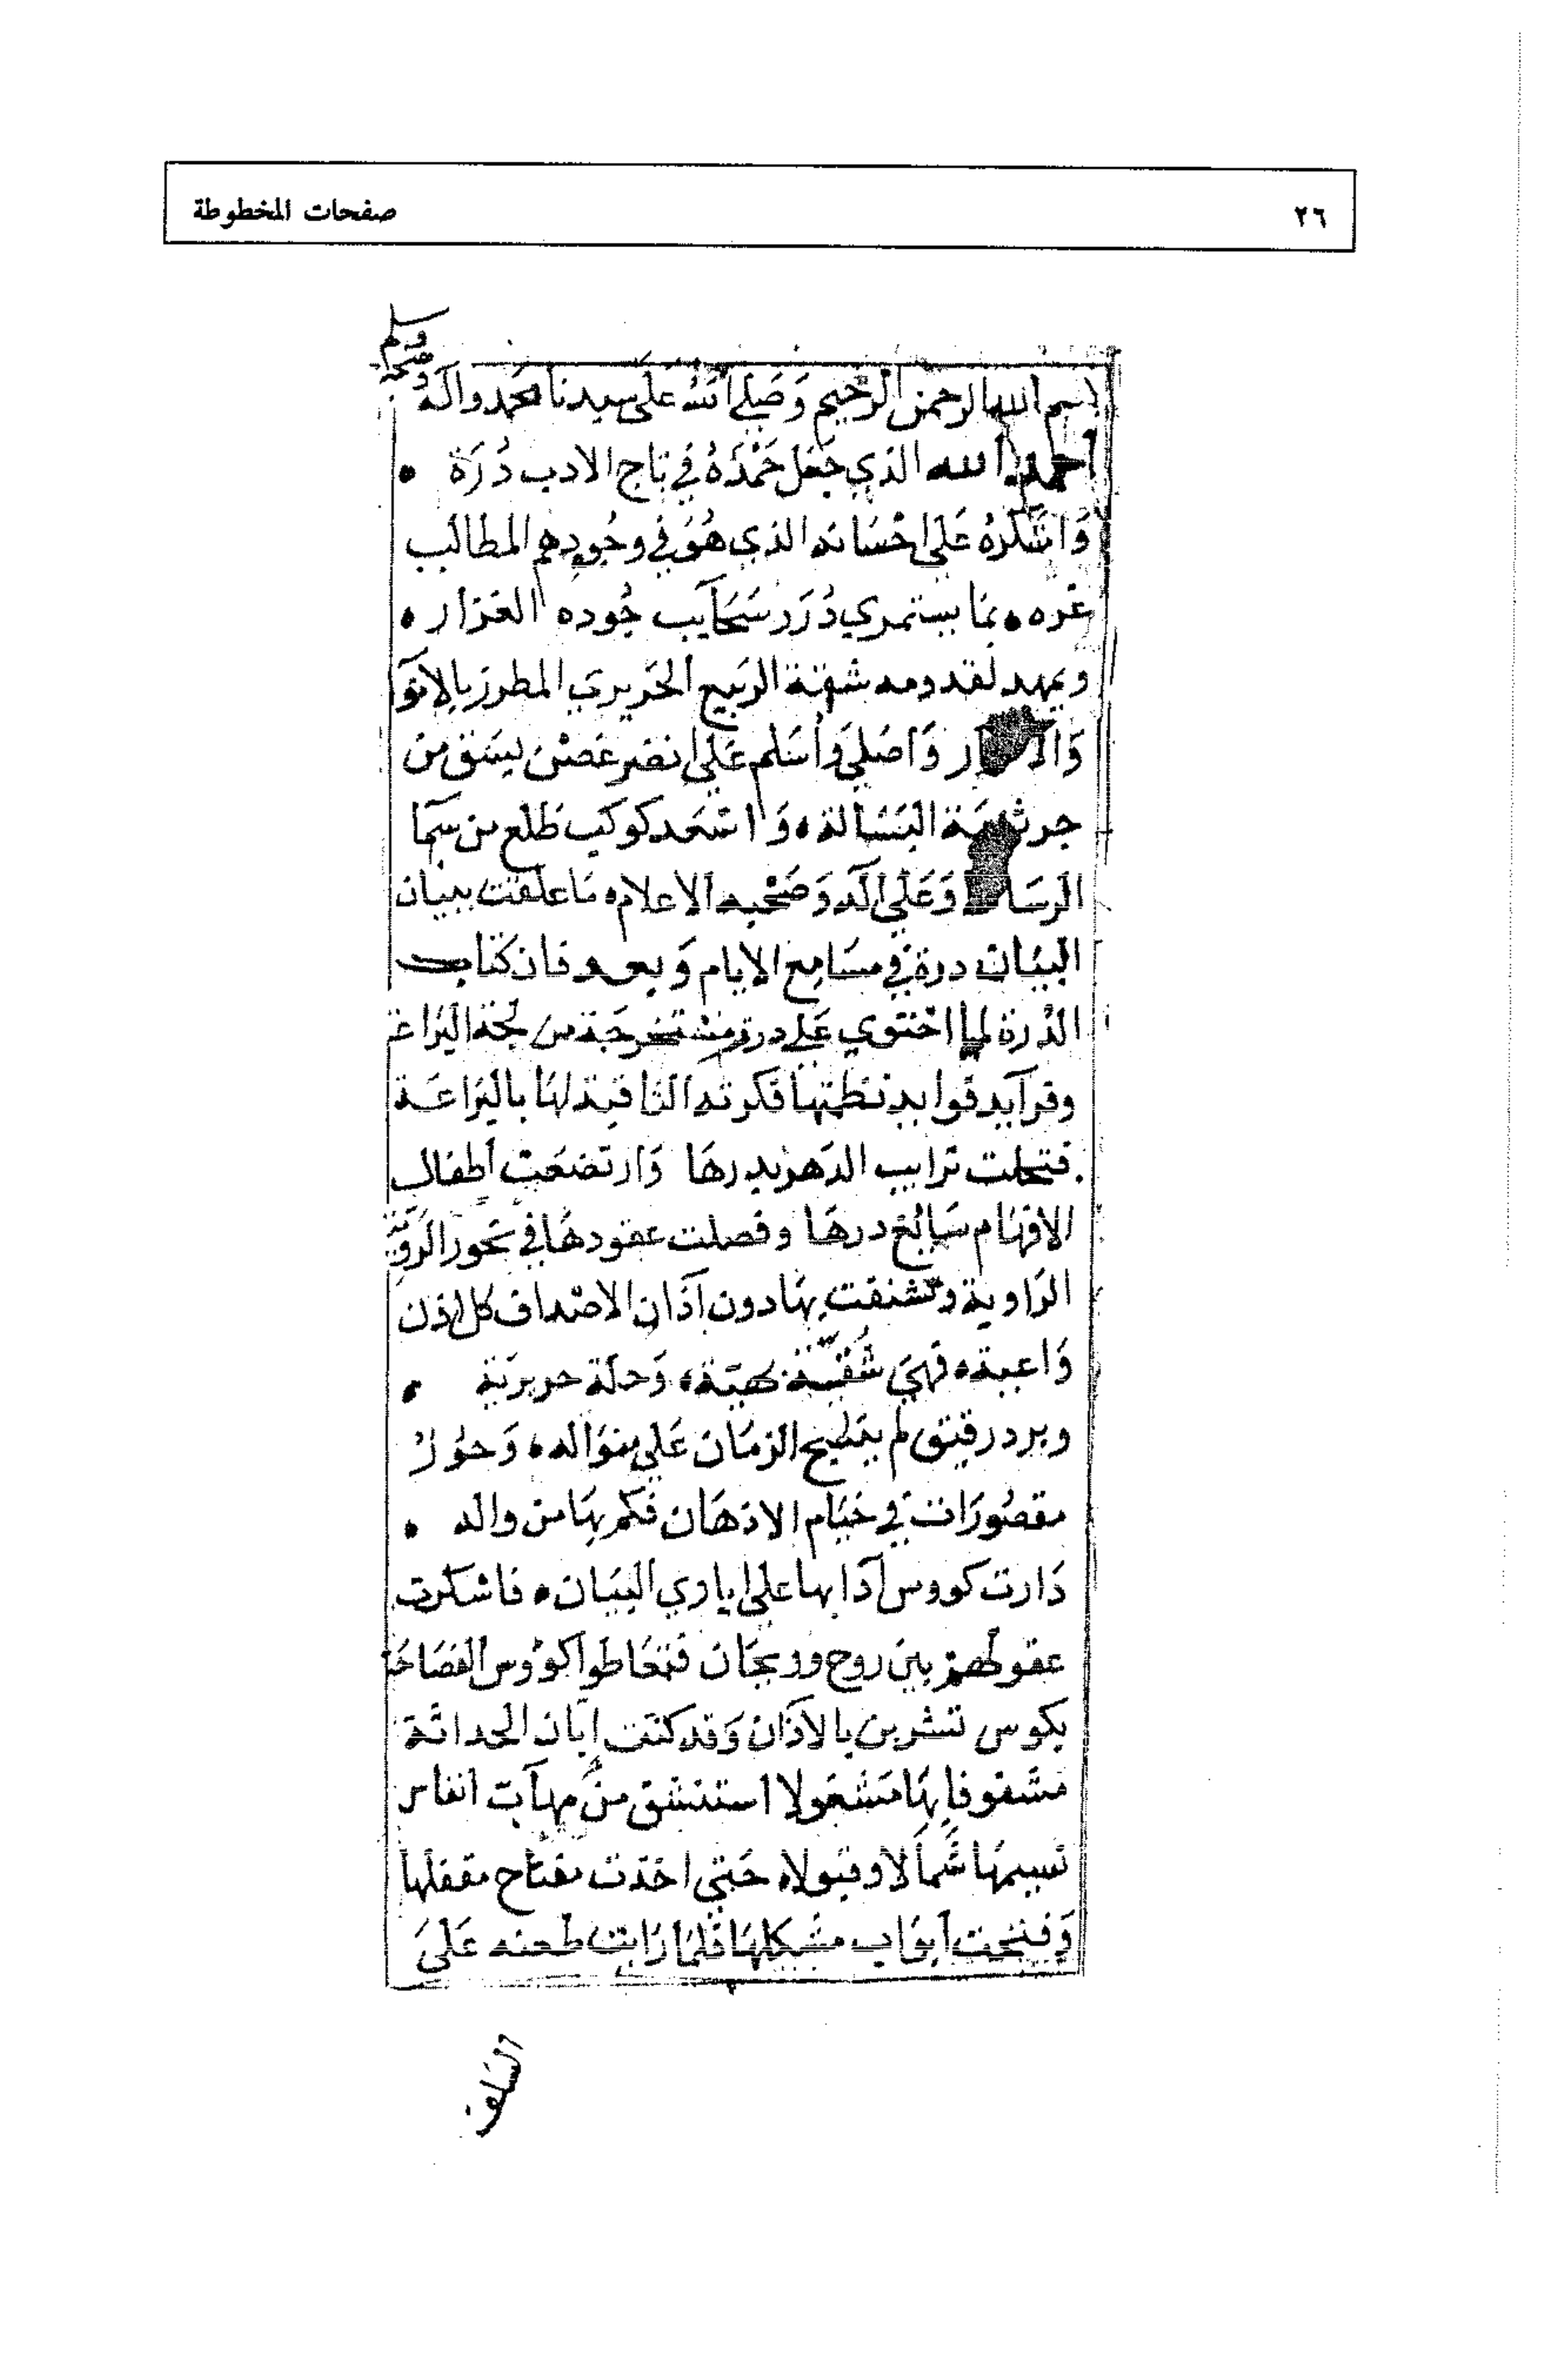 ٢٦
صفحات المخطوطة
بسم الله الرحمن الرحيم وَصَلى الله عَلى سيدنا محمد واله وصحبه وسلم
أحمد الله الذي جَعَل حَمْدَهُ في تاج الادب دُرَة
وَاشكرهُ عَلى احْسَانه الذي هُوَ في وجُوه المطالب
غره بمَا يستمري دُرَر سَحَايب جُوده الغزار
ويمهد لقدومه شقة الربيع الحَريري المطرز بالانوَا
وَالا ر وَاصَلي وأسَلم عَلى انضر غصْن بسَق من
جرثومَة البَسَالة وَاسْعَد كوكب طَلع من سَمَا
الرسَا وَعَلى آله وَصَحْبه الاعلام مَا علقت ببنان
البيَان درة في مسَامع الايام وَبعد فان كتاب
الدُرة لما احْتوي عَلى درة مستخرجَة من لجة البَرَاعَة
وفرآيد فوايد نظمتها فكرته الثاقبة لهَا باليَرَاعَة
فتحلت ترايب الدَهر بدرهَا وَارتضعَت أطفال
الافهَام سَايغ درهَا وفصلت عقودهَا في نحور الرَويّة
الرَاوية وتشنفت بهَا دون آذَان الاصْداف كل اذن
وَاعية فهيَ شُقّة بهيّة وَحلة حريريَة
وبرد رقيق لم ينسج الزمَان عَلى منوَاله وَحوُرُ
مقصُورَات في خيَام الاذهَان فكم بهَا من واله
دَارت كووس آدَابها على ايادي البيَان فاسكرت
عقولهم بين روح وريحَان فتعَاطوا كؤوس الفصَاحَة
بكوس تشربن بالآذَان وَقد كنت إبان الحداثة
مشغوفا بهَا مَشغولا استنشق من مهآبّ انفاس
نسيمهَا شَمالا وقبولا حَتي اخذت مفتاح مقفلها
وَفتحت أبوَاب مشكلهَا فلمَا رَايت طعنه عَلى
السلف